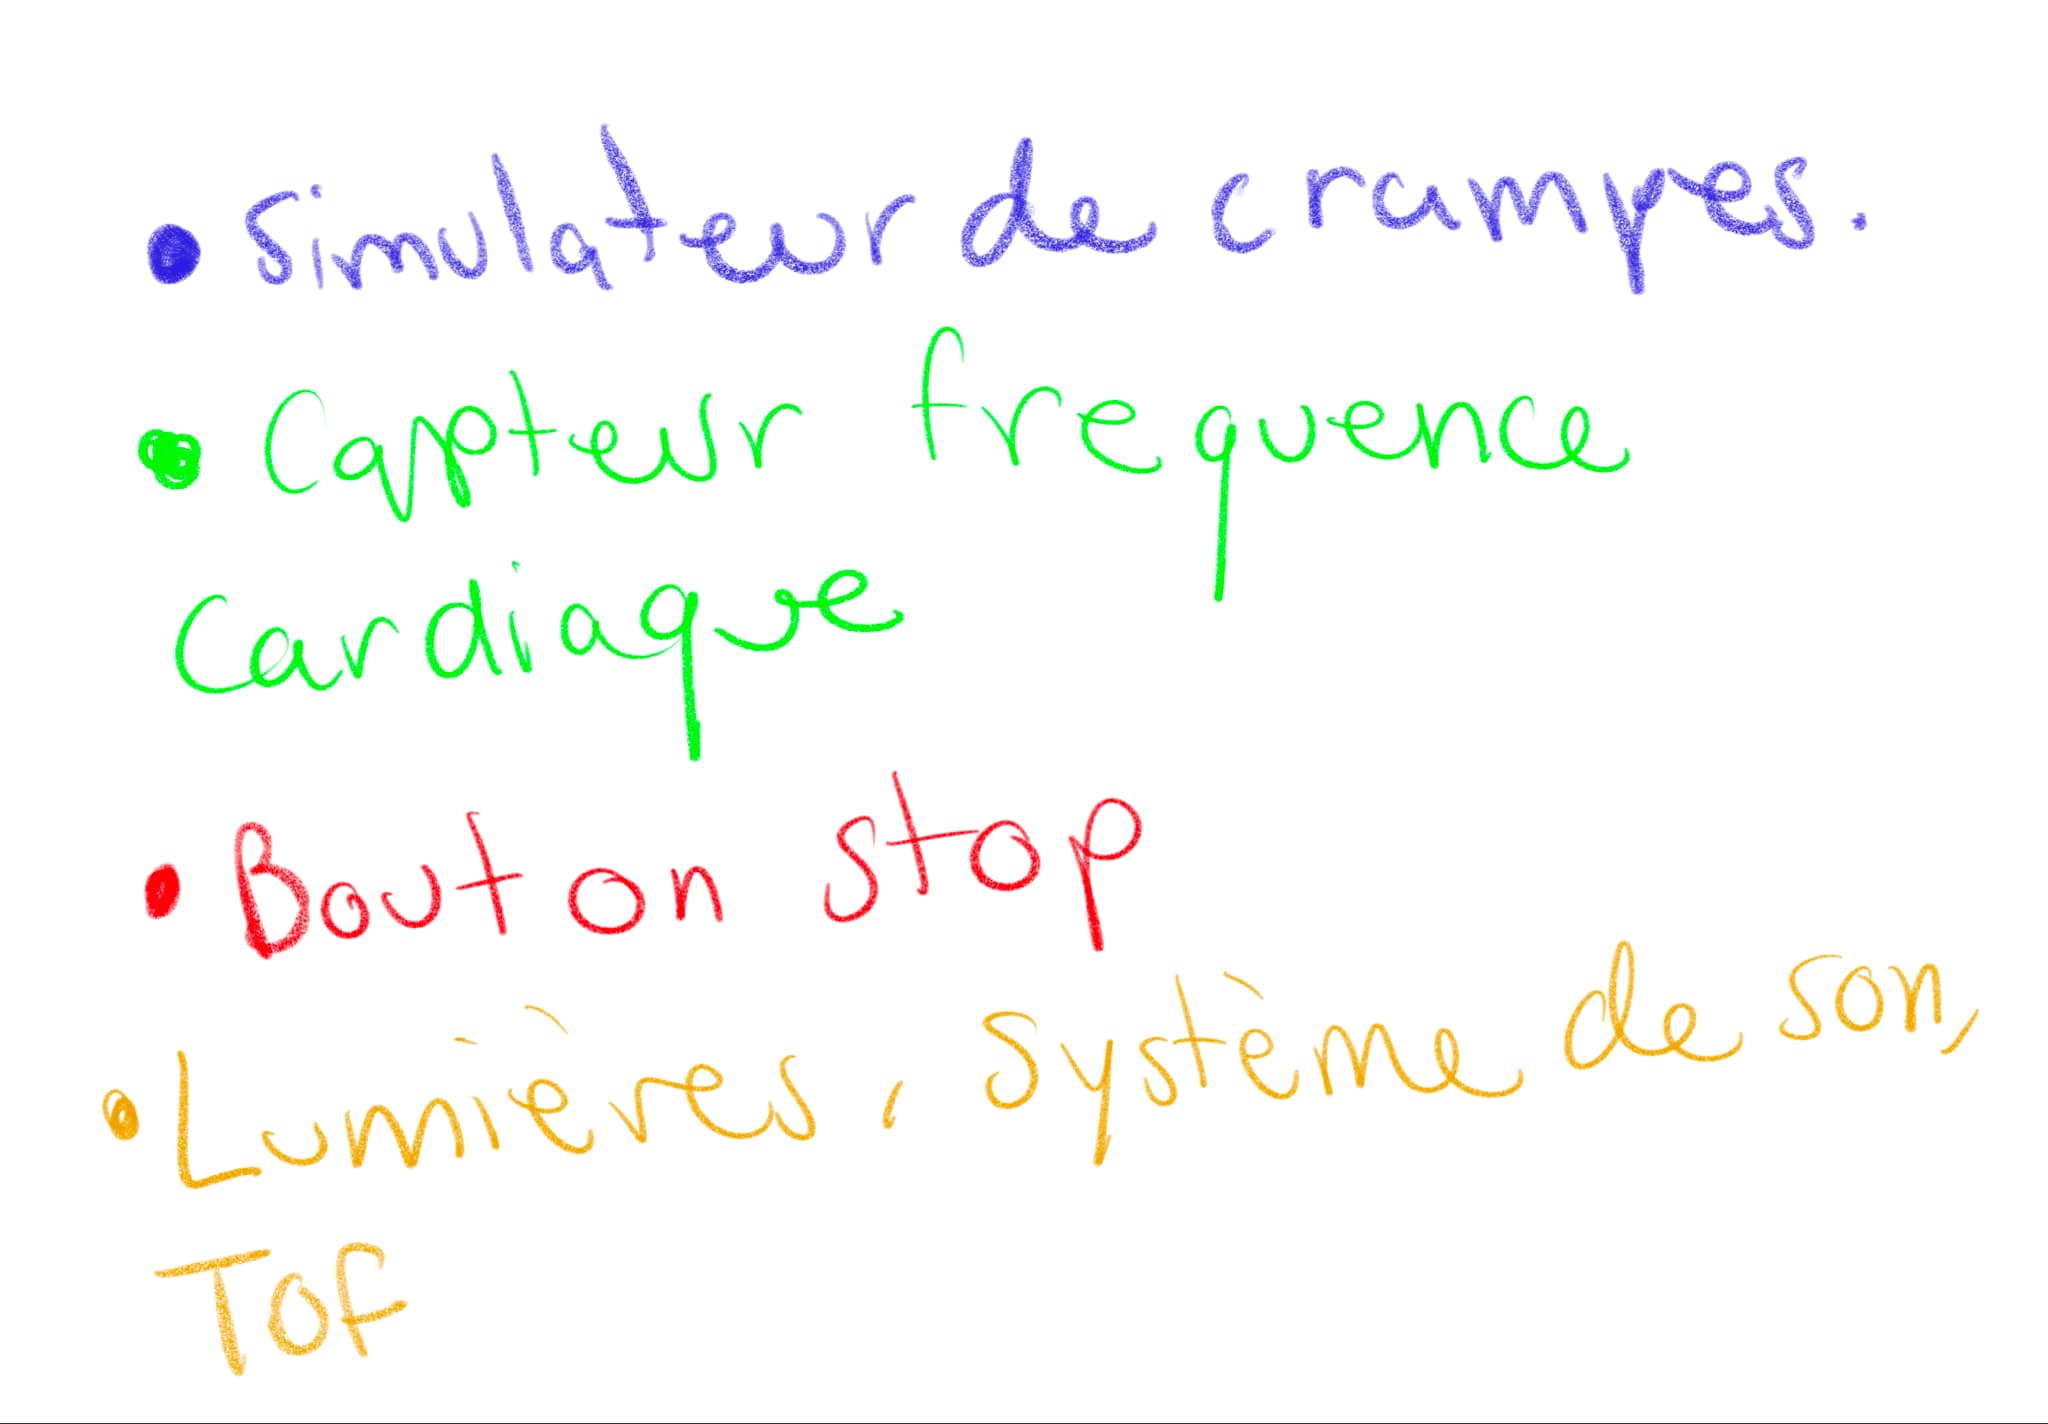 • Simulateur de crampes.
• Capteur frequence
Cardiaque
• Bouton stop
• Lumières, Système de son,
Tof